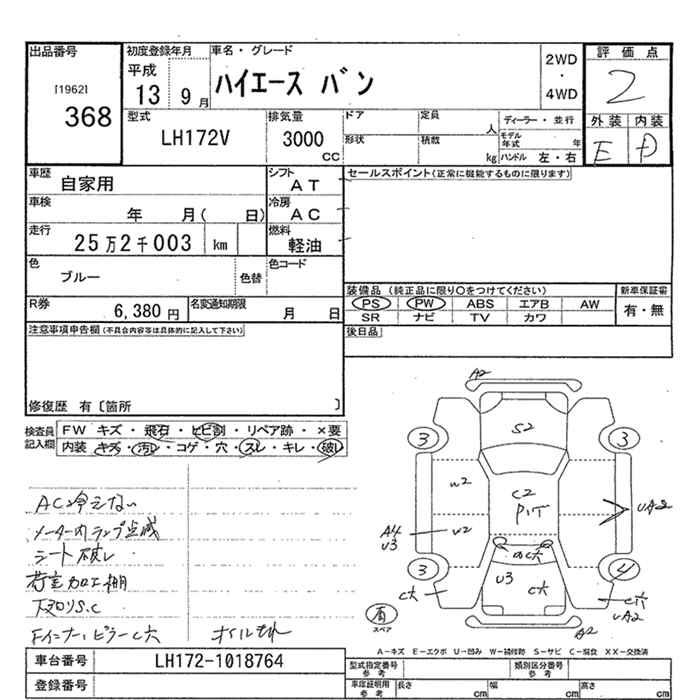 出品番号
[1962]
368
初度登録年月
平成
13 9月
車名・グレード
ハイエース バン
2WD
・
4WD
評価点
2
型式
LH172V
排気量
3000
CC
ドア
定員
人
形状
積載
kg
ディーラー・並行
モデル年式 年
ハンドル 左・右
外装 内装
E D
車歴
自家用
シフト
AT
車検
年 月( 日)
冷房
AC
走行
25万2千003 km
燃料
軽油
色
ブルー
色替
色コード
R券
6,380 円
名変通知期限
月 日
セールスポイント(正常に機能するものに限ります)
装備品 (純正品に限り○をつけてください)
PS PW ABS エアB AW
SR ナビ TV カワ
新車保証書
有・無
後日品
注意事項申告欄(不具合内容等は具体的に記入して下さい)
修復歴 有〔箇所 〕
検査員記入欄
FW キズ・飛石・ヒビ割・リペア跡・×要
内装 キズ・汚レ・コゲ・穴・スレ・キレ・破レ
AC冷えない
メーター内ランプ点滅
シート破レ
荷室加工棚
下回リS.C
Fインナーピラー C大
オイルもれ
A2
3
S2
3
W2
C2
PIT
UA2
A4
U3
U2
のC大
3
U3
C大
4
C大
C大
UA2
A2
有
スペア
A-キズ E-エクボ U-凹み W-補修跡 S-サビ C-腐食 XX-交換済
車台番号
LH172-1018764
登録番号
型式指定番号
参考
類別区分番号
参考
車庫証明用
参考
長さ cm
幅 cm
高さ cm